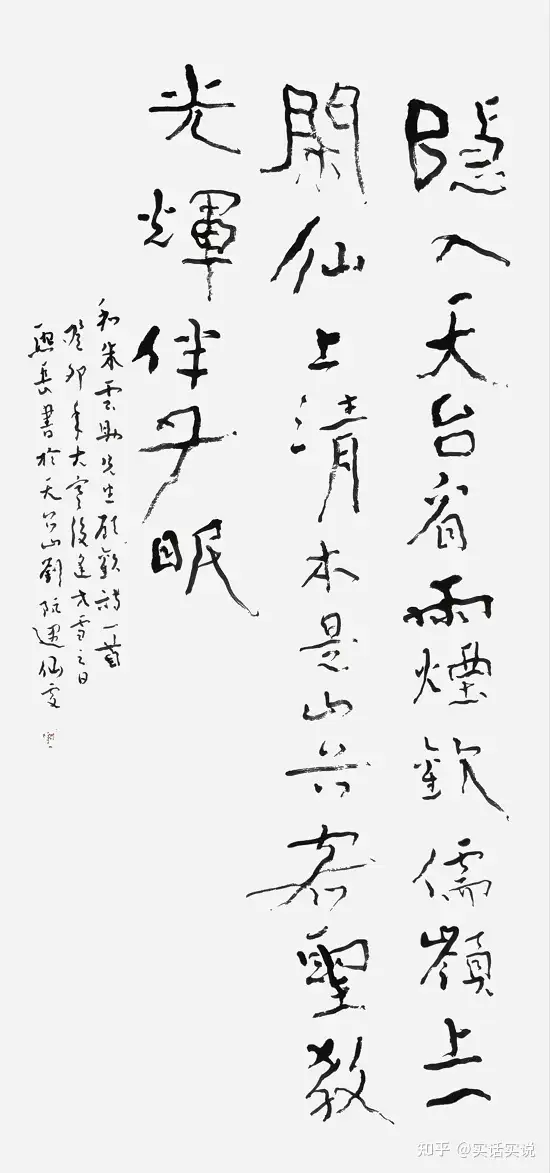 隱入天台看雨煙歡儒嶺上一
閑仙上清本是山谷客聖教
光輝伴眠
和朱雲助先生顧歡詩一首
癸卯年大寒後逢大雪之日
書於天台山劉阮遇仙處
知乎 @实话实说